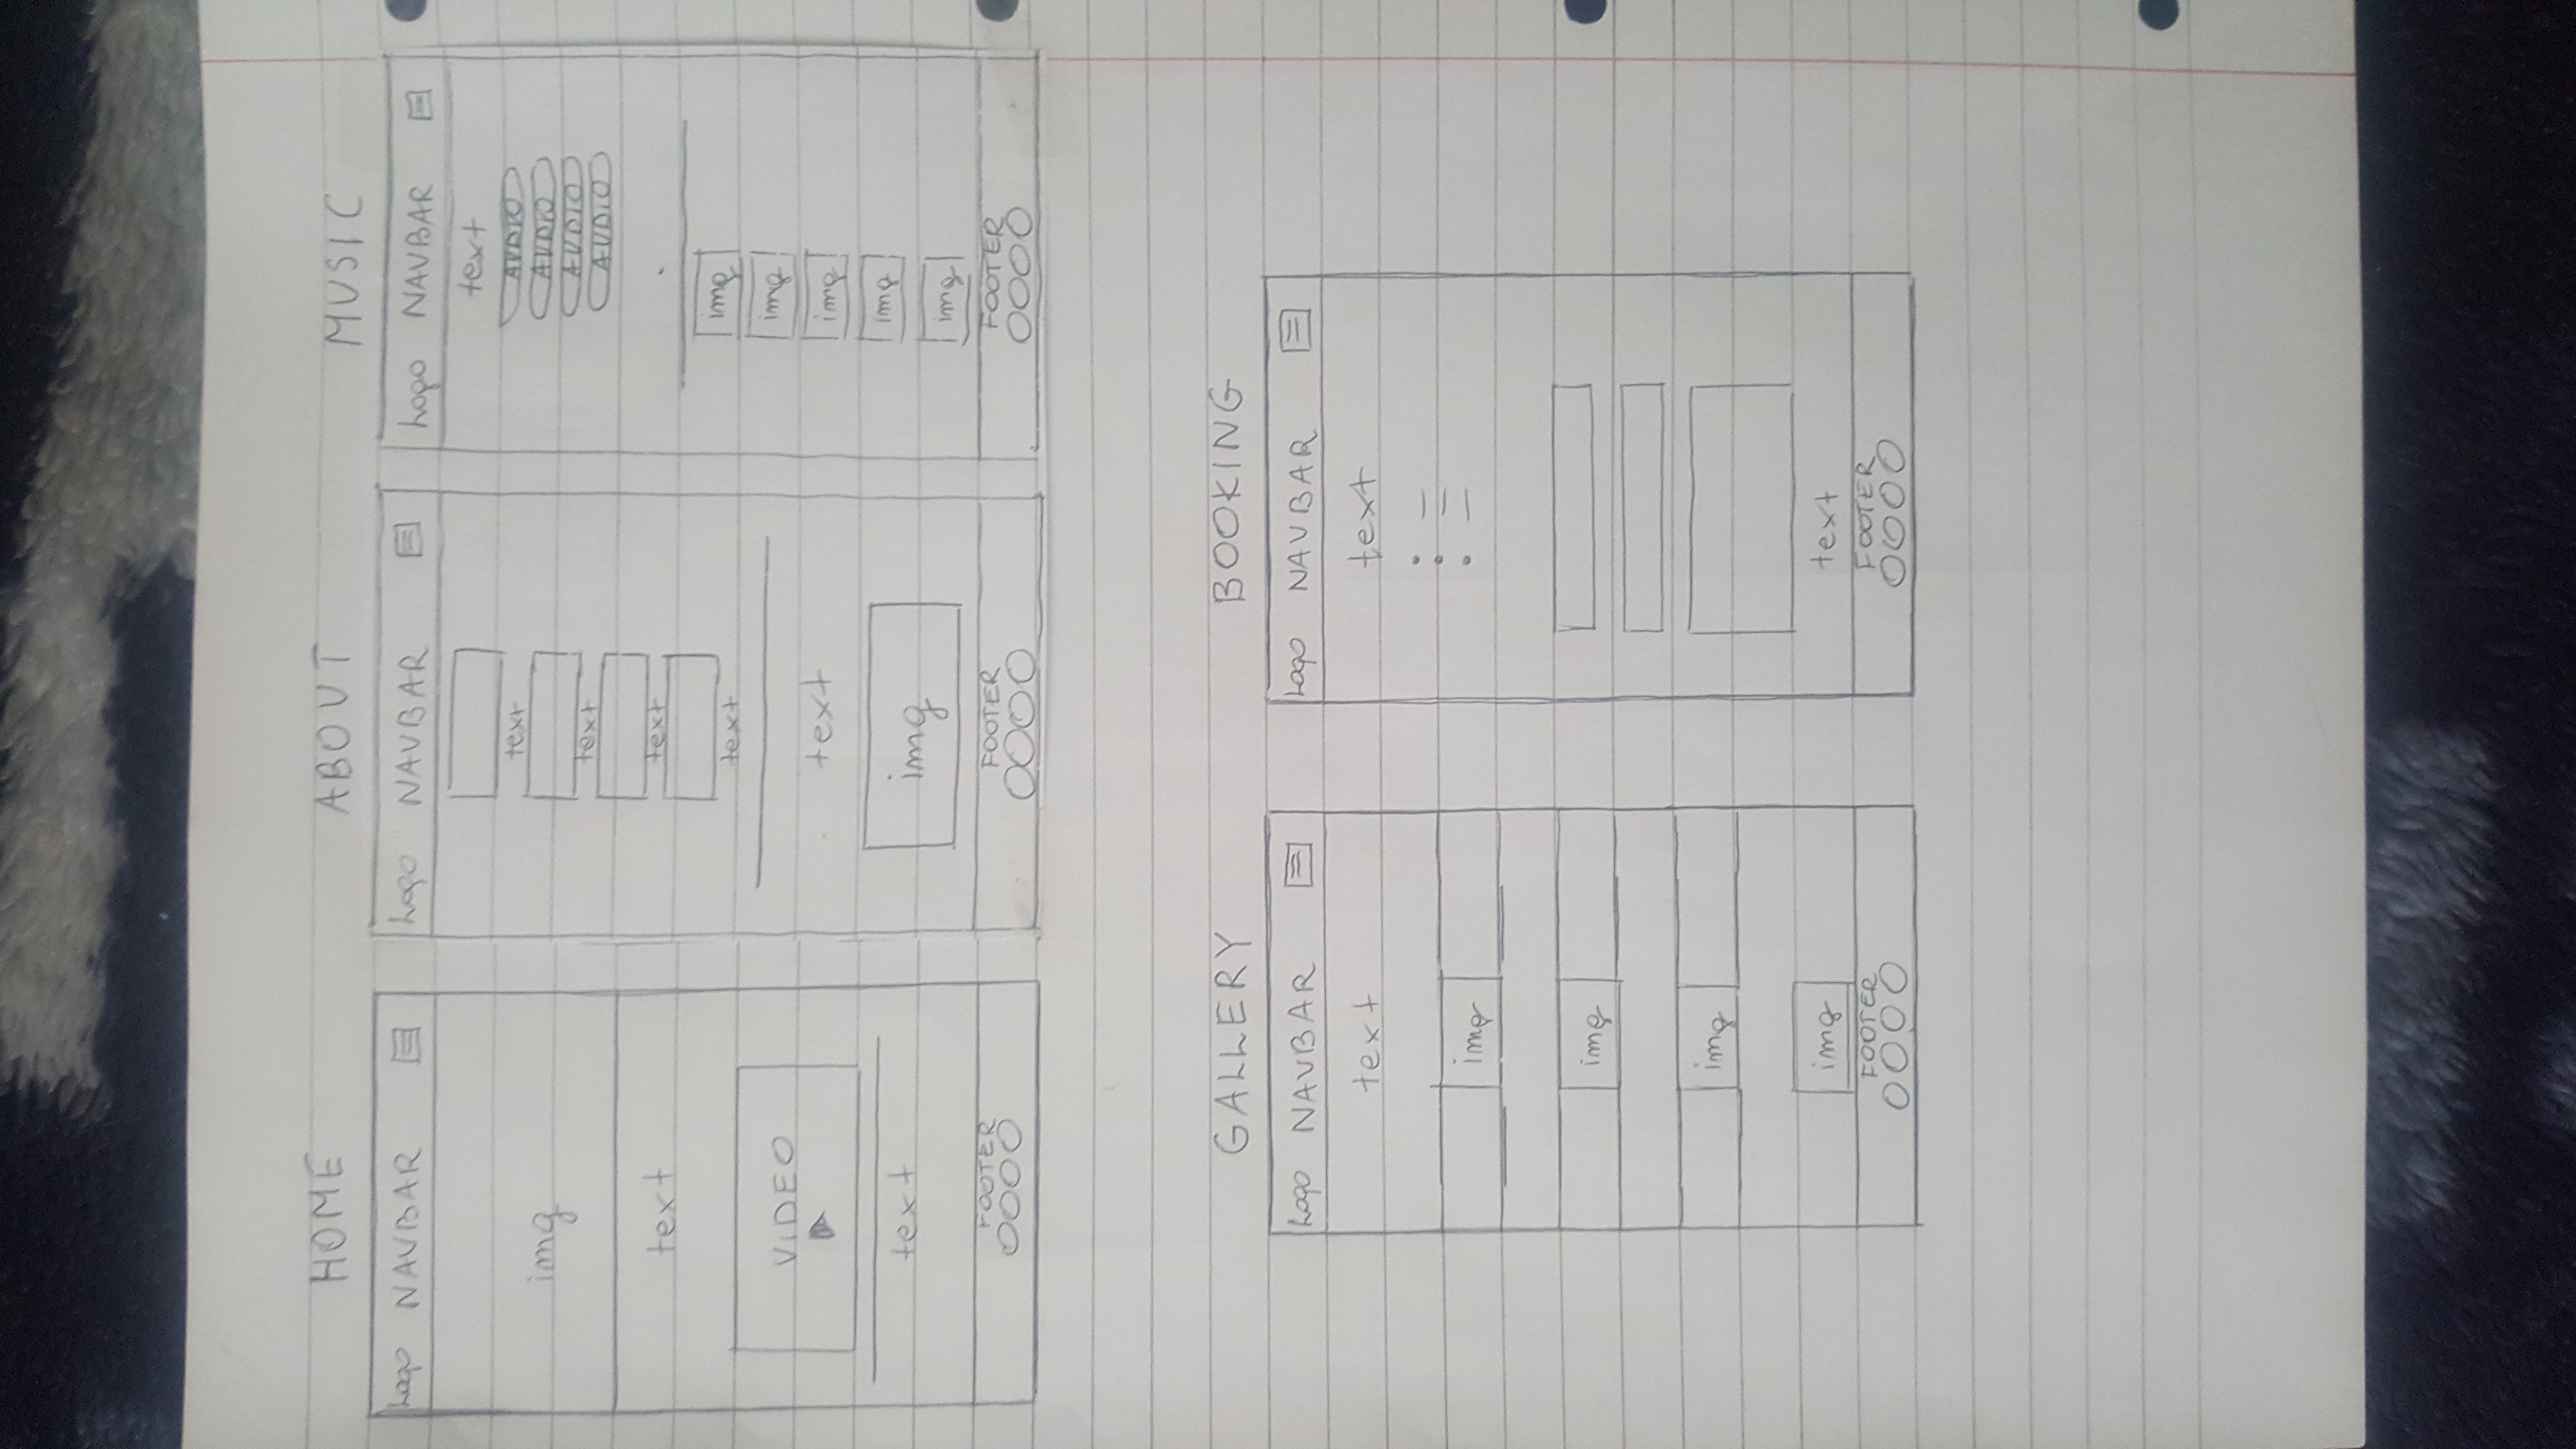 HOME
Logo NAVBAR
img
text
VIDEO
text
FOOTER
ABOUT
Logo NAVBAR
text
text
text
text
text
img
FOOTER
MUSIC
Logo NAVBAR
text
AUDIO
AUDIO
AUDIO
AUDIO
img
img
img
img
img
FOOTER
GALLERY
Logo NAVBAR
text
img
img
img
img
FOOTER
BOOKING
Logo NAVBAR
text
text
FOOTER